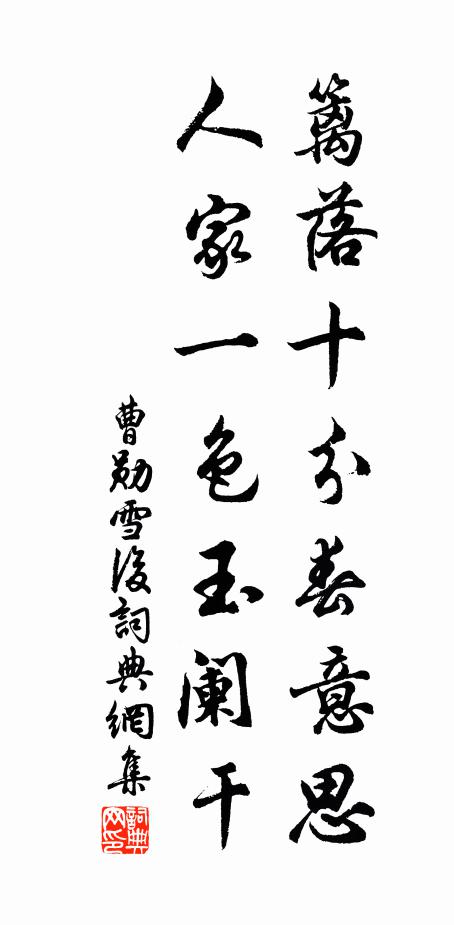 篱落十分春意思
人家一色玉阑干
曹勋雪後詞典網集
詞典网印